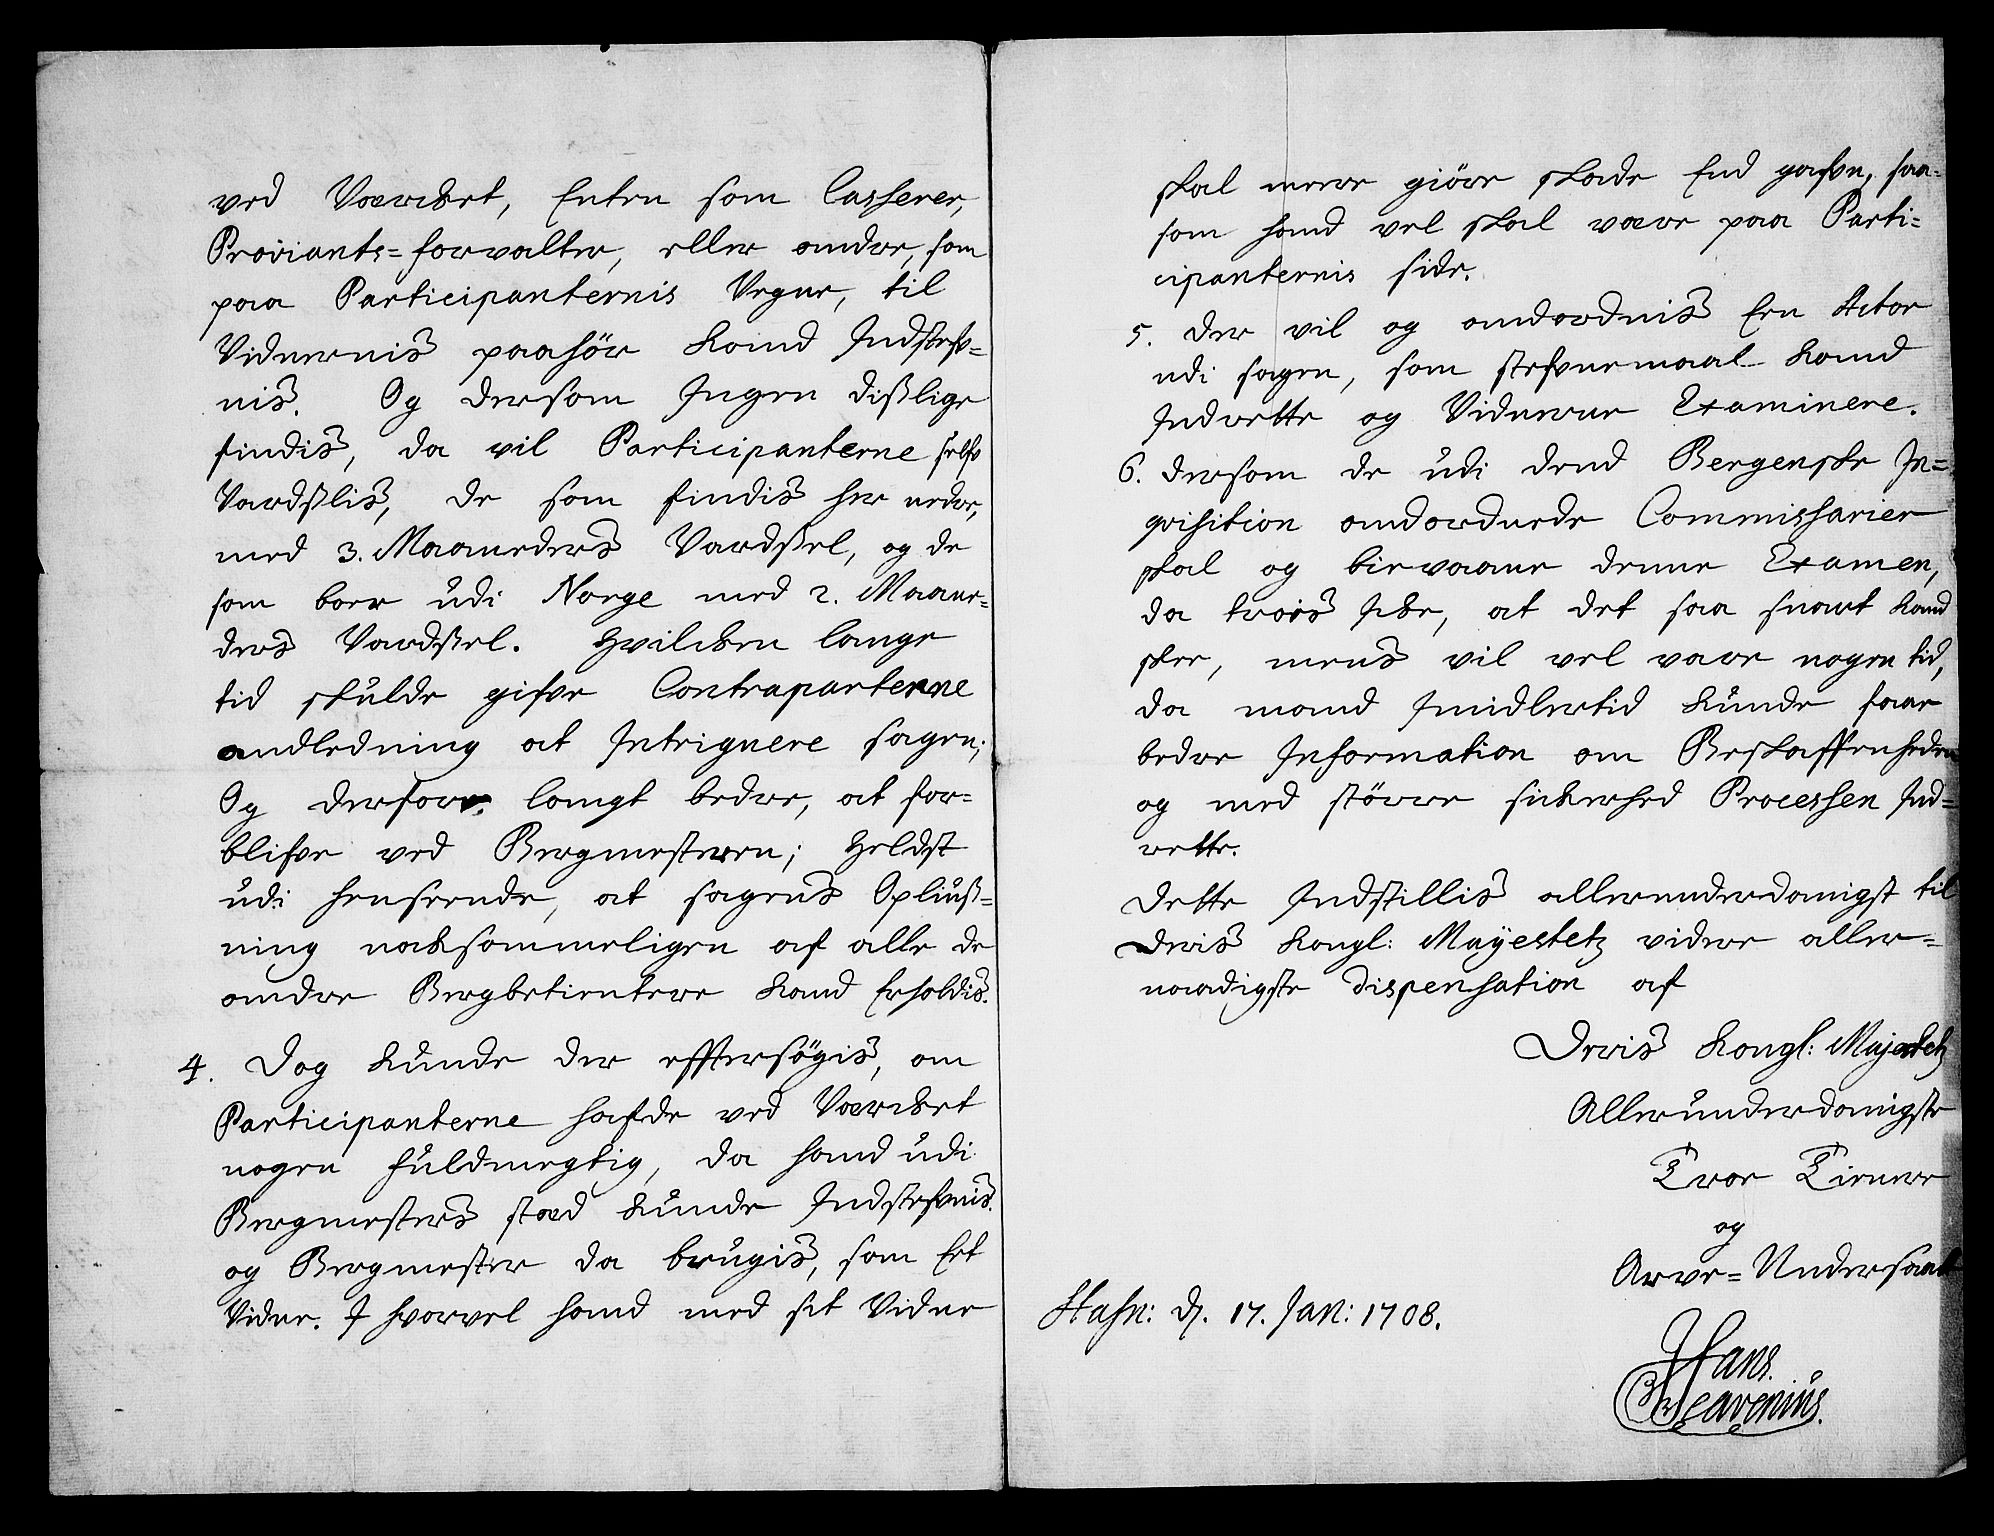 ved Værcket, Enten som Casserer,
Proviants=forvalter, eller andre, som
paa Participanternis Vegne, til
Vidnernis paahör kand Indstefv=
nis. Og dersom Ingen dißlige
findis, da vil Participanterne self
Vardßlis, de som findis her nedre,
med 3. Maaneders Vardßel, og de
som boer udi Norge med 2. Maane=
ders Vardßel. Hvilcken lange
tid skulde gifve Contraparterne
andledning at Intriguere sagen;
Og derfore langt bedre, at for=
blifve ved Bergmesteren; Heldst
udi henseende, at sagens Opliuß=
ning nocksommeligen af alle de
andre Bergbetientere kand Erholdis.
4. Dog kunde der efftersögis, om
Participanterne hafde ved Værcket
nogen fuldmegtig, da hand udi
Bergmesters sted kunde Indstefvnis.
og Bergmester da brugis, som Eet
Vidne. I hvorvel hand med sit Vidne
skal meere giöre skade End gafvn, saa=
som hand vel skal være paa Parti=
cipanternis side.
5. Der vil og andordnis Een Actor
udi sagen, som stefvnemaal kand
Indrette og Vidnerne Examinere.
6. Dersom de udi dend Bergenske In=
qvisition andordnede Commissarier
skal og bievaane denne Examen,
da troes Icke, at det saa snart kand
skee, mens vil vel være nogen tid,
da mand Imidlertid kunde faae
bedre Information om Beskaffenheden
og med större sickerhed Processen Ind=
rette.
Dette Indstillis allerunderdanigst til
Deris Kongl: Mayestetz videre aller=
naadigste dispensation af
Deris Kongl: Majestetz
Allerunderdanigste
Troe Tienere
og
Arve=Undersaatt
Hafn: d. 17. Jan: 1708.
Hans
Seavenius.